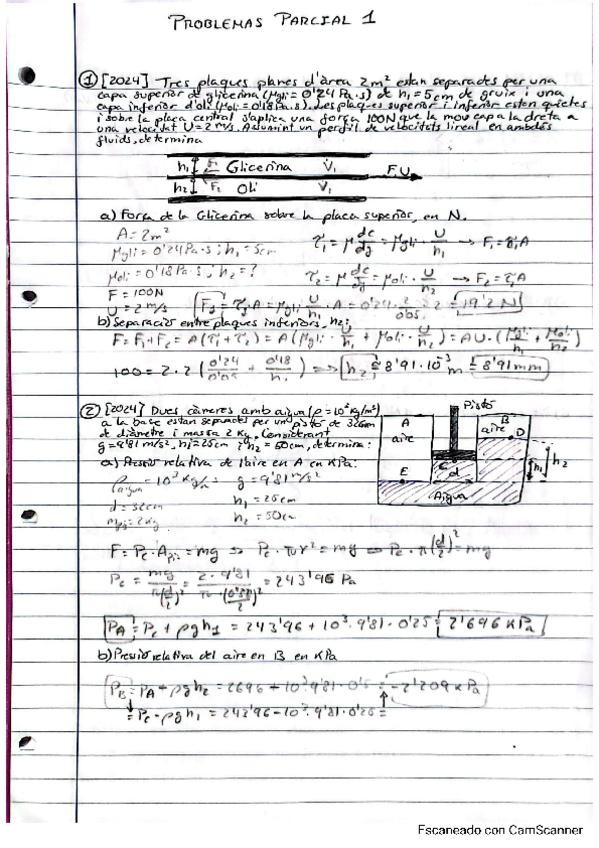 PROBLEMAS PARCIAL 1
① [2024] Tres plaques planes d'àrea 2m² estan separades per una
capa superior de glicerina (μgli = 0'24 Pa·s) de h₁ = 5cm de gruix i una
capa inferior d'oli (μoli = 0'18 Pa·s). Les plaques superior i inferior esten quietes
i sobre la placa central s'aplica una força 100N que la mou cap a la dreta a
una velocitat U = 2 m/s. Assumint un perfil de velocitats lineal en ambdós
fluids, determina
h₁ F₁ Glicerina V₁
F U
h₂ F₂ Oli V₁
a) Força de la Glicerina sobre la placa superior, en N.
A = 2m²
μgli = 0'24 Pa·s ; h₁ = 5cm
μoli = 0'18 Pa·s ; h₂ = ?
F = 100N
U = 2 m/s
τ₁ = μ dc/dy = μgli · U/h₁ → F₁ = τ₁A
τ₂ = μ dc/dy = μoli · U/h₂ → F₂ = τ₂A
· A = μgli · U/h₁ · A = 0'24 · 2/0'05 · 2 = 19'2 N
b) Separació entre plaques inferiors, h₂:
F = F₁ + F₂ = A(τ₁ + τ₂) = A(μgli · U/h₁ + μoli · U/h₂) = AU · (μgli/h₁ + μoli/h₂)
100 = 2 · 2 (0'24/0'05 + 0'18/h₂) ⇒ h₂ = 8'91 · 10⁻³ m = 8'91 mm
② [2024] Dues càmeres amb aigua (ρ = 10³ kg/m³)
a la base estan separades per un pistó de
de diàmetre i massa 2 kg. Considerant
g = 9'81 m/s², h₁ = 25cm i h₂ = 50cm, determina:
a) Pressió relativa de l'aire en A en KPa:
Pistó
A
aire
B
aire
D
C
d
E
h₁
h₂
Aigua
ρaigua = 10³ kg/m³ g = 9'81 m/s²
d = 32cm h₁ = 25cm
mpis = 2kg h₂ = 50cm
F = Pc · Apis = mg ⇒ Pc · πr² = mg ⇒ Pc · π(d/2)² = mg
Pc = mg/π(d/2)² = 2 · 9'81/π · (0'32/2)² = 243'96 Pa
PA = Pc + ρgh₁ = 243'96 + 10³ · 9'81 · 0'25 = 2'696 KPa
b) Pressió relativa del aire en B en KPa
PB = PA + ρgh₂ = 2696 + 10³ · 9'81 · 0'5 = -2'209 KPa
= Pc - ρgh₁ = 243'96 - 10³ · 9'81 · 0'25 =
Escaneado con CamScanner